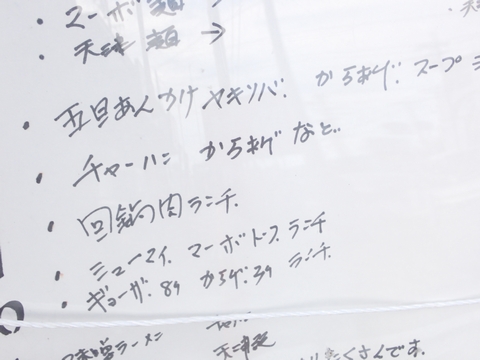 ・マーボ麺
・天津麺→
・五目あんかけヤキソバ. から揚げ. スープ
・チャーハン から揚げ など.
・回鍋肉ランチ.
・シューマイ. マーボトーフ. ランチ
・ギョーザ. 8ヶ から揚げ. 3ヶ ランチ.
味噌ラーメン
たくさんです.